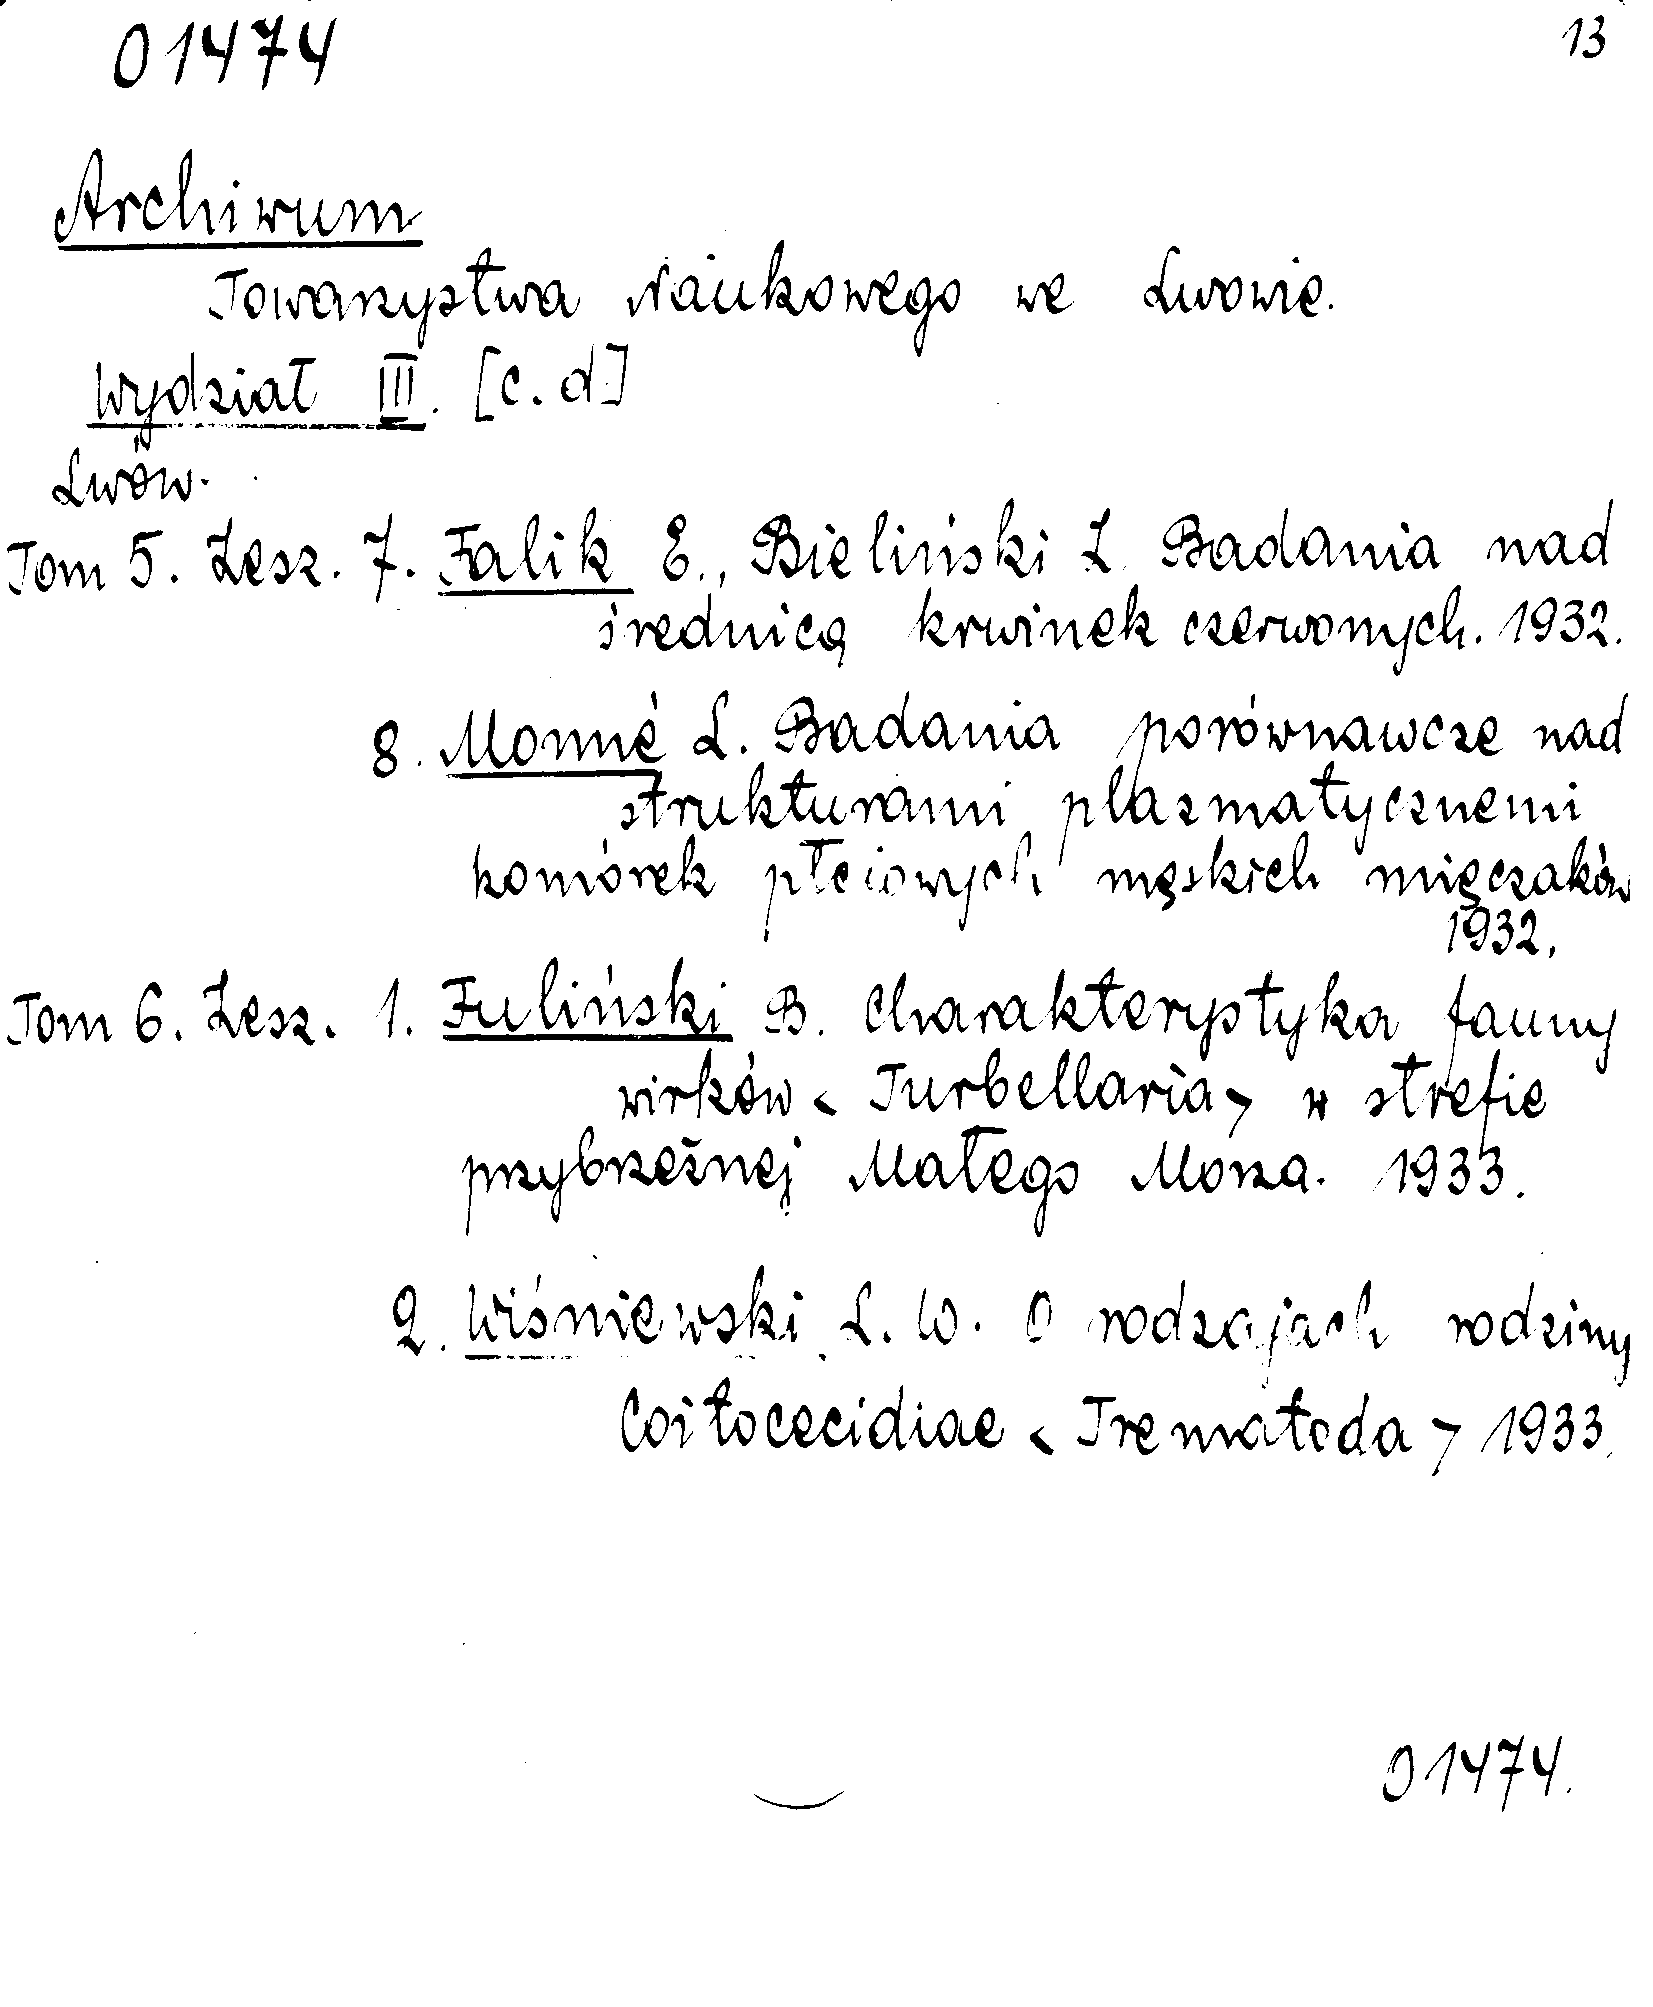 01474
13
Archiwum
Towarzystwa Naukowego we Lwowie.
Wydział III. [c.d]
Lwów.
Tom 5. Zesz. 7. Falik E., Bieliński Z. Badania nad
średnicą krwinek czerwonych. 1932.
8. Monné L. Badania porównawcze nad
strukturami plazmatycznemi
komórek płciowych męskich mięczaków
1932.
Tom 6. Zesz. 1. Fuliński B. Charakterystyka fauny
wirków < Turbellaria > w strefie
przybrzeżnej Małego Morza. 1933.
2. Wiśniewski L. W. O rodzajach rodziny
Coitocecidiae < Trematoda > 1933.
01474.